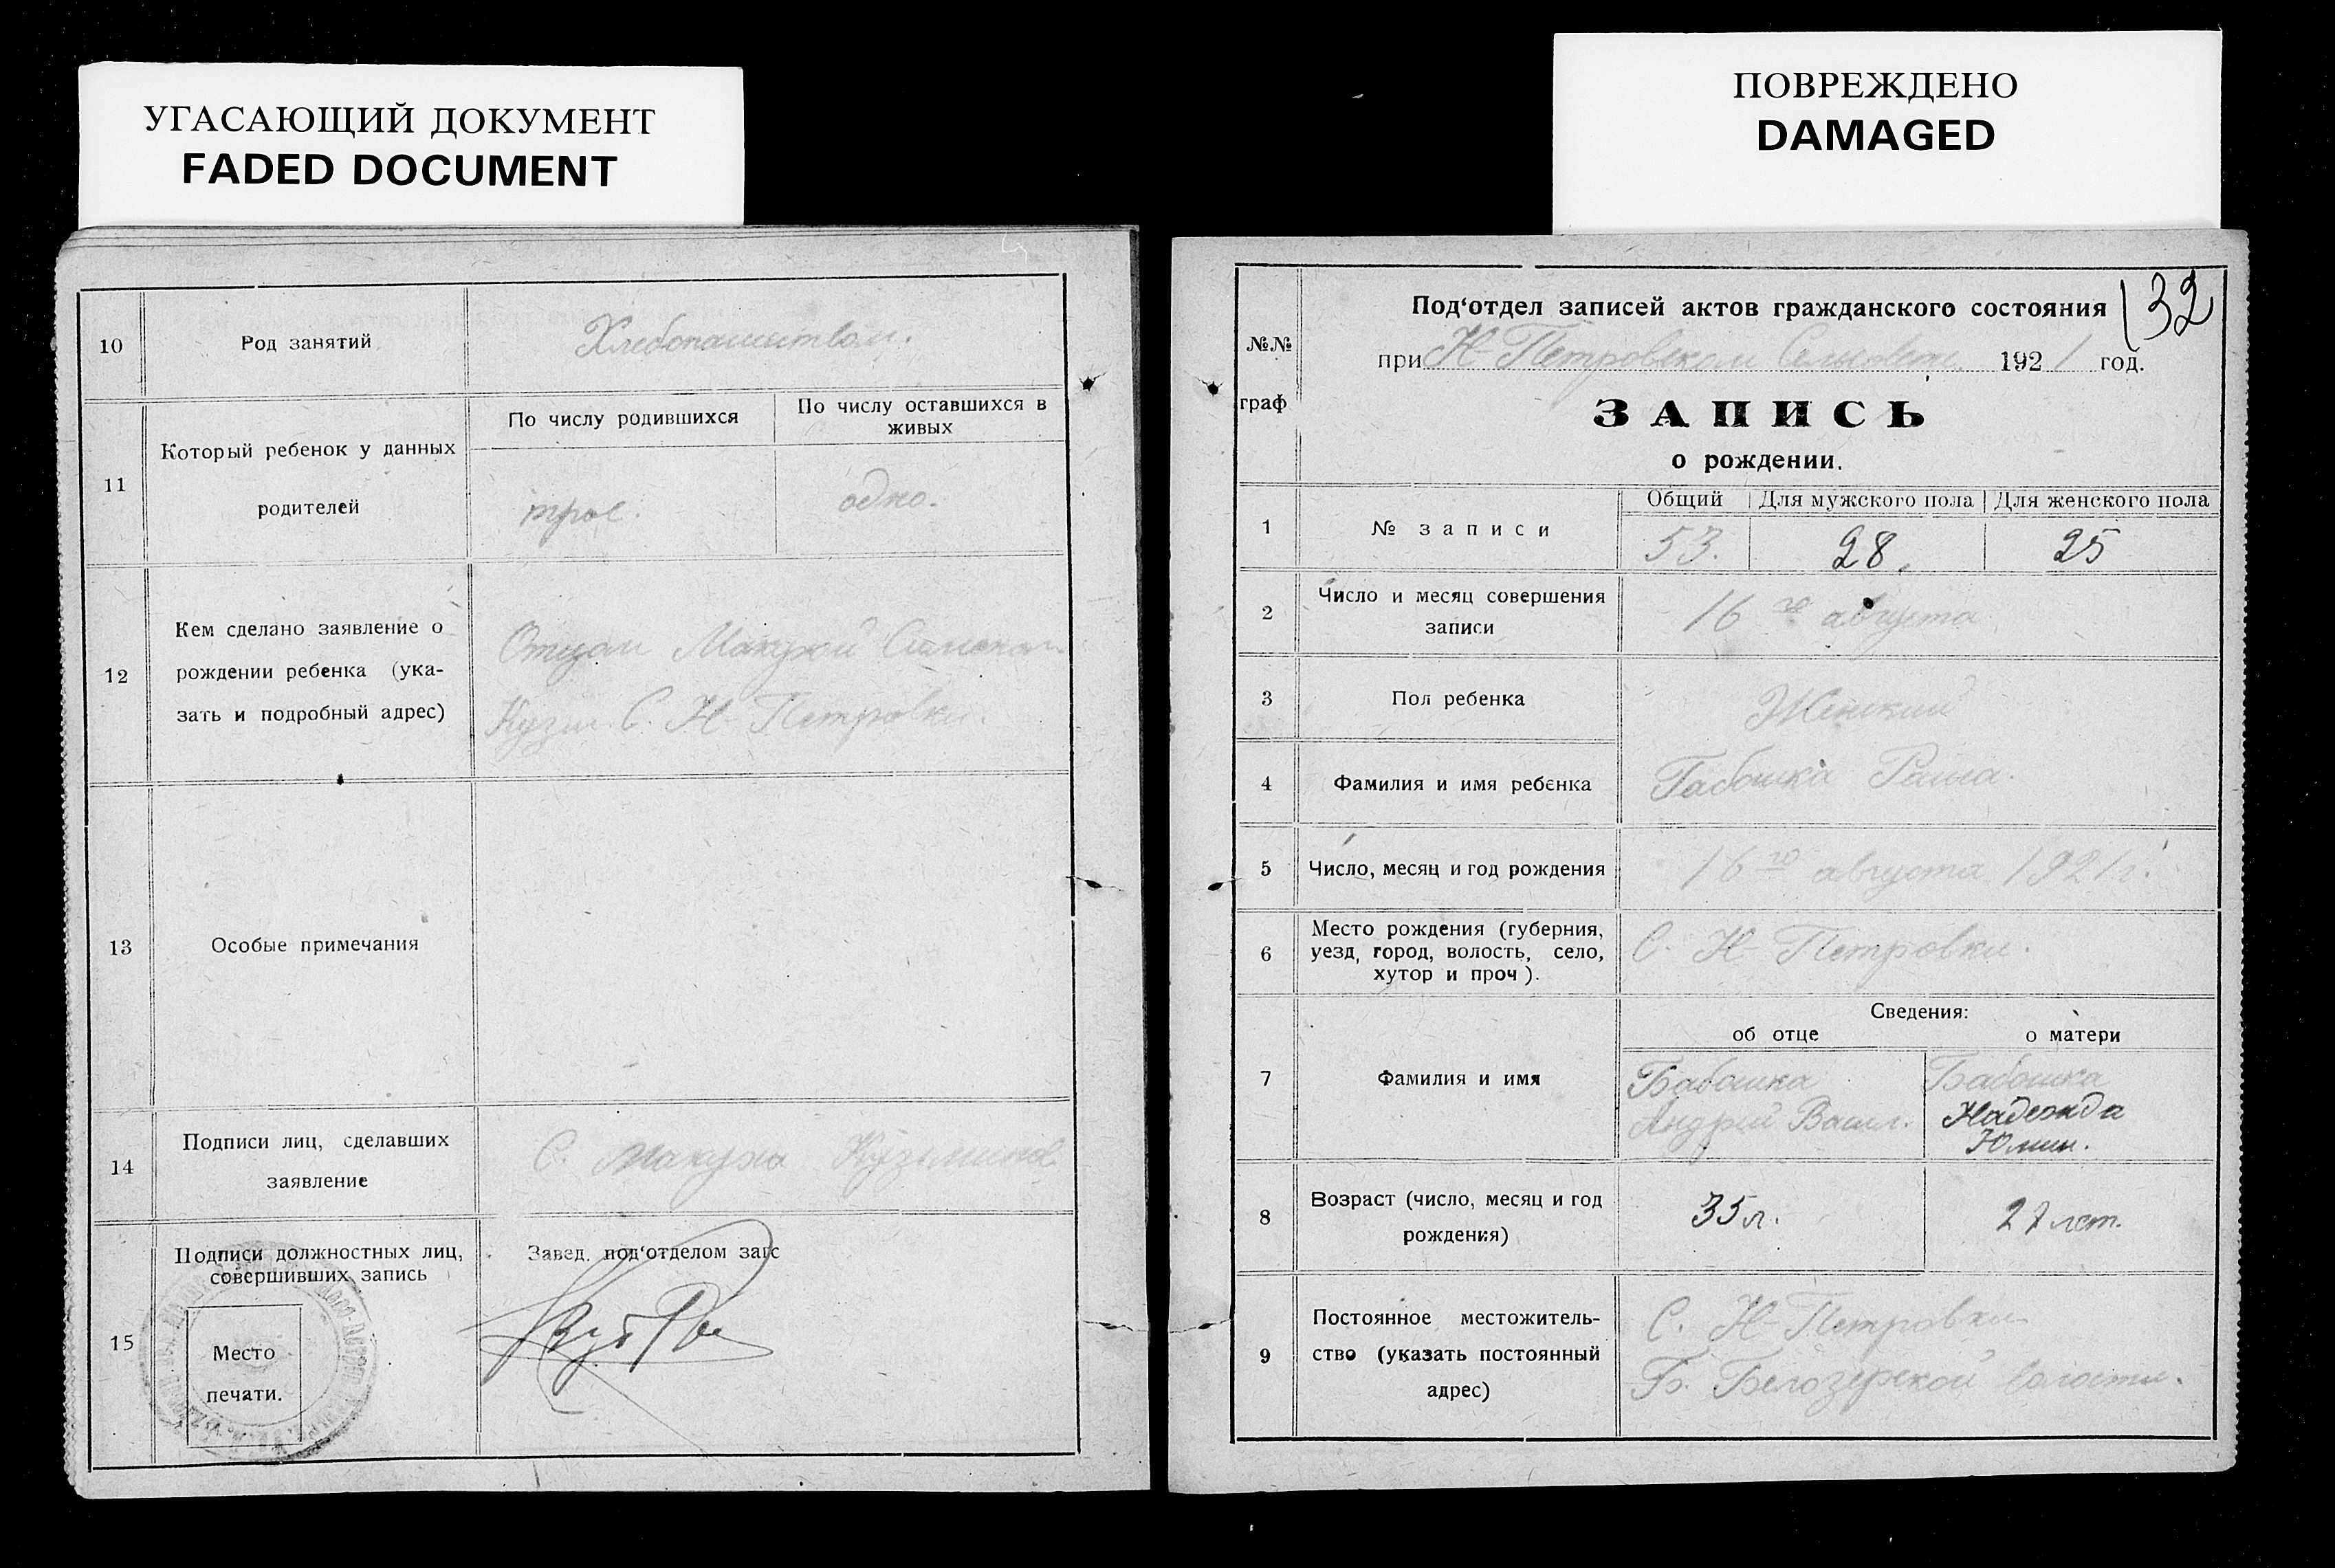 УГАСАЮЩИЙ ДОКУМЕНТ
FADED DOCUMENT
ПОВРЕЖДЕНО
DAMAGED
10
Род занятий
Хлебопашеством.
11
Который ребенок у данных
родителей
По числу родившихся
По числу оставшихся в
живых
трое.
одно.
12
Кем сделано заявление о
рождении ребенка (ука-
зать и подробный адрес)
Отцом
С. Н-Петровки.
13
Особые примечания
14
Подписи лиц, сделавших
заявление
С. Макуха
15
Подписи должностных лиц,
совершивших запись
Место
печати.
Завед. под‘отделом загс
132
№№
граф
Под‘отдел записей актов гражданского состояния
при Н-Петровском 1921 год.
ЗАПИСЬ
о рождении.
1
№ записи
Общий
Для мужского пола
Для женского пола
53.
28.
25
2
Число и месяц совершения
записи
16го августа
3
Пол ребенка
Женский
4
Фамилия и имя ребенка
5
Число, месяц и год рождения
16го августа 1921 г.
6
Место рождения (губерния,
уезд, город, волость, село,
хутор и проч).
С. Н-Петровки.
7
Фамилия и имя
Сведения:
об отце
о матери
Бабошка
Андрей Васил.
Бабошка
Надежда
8
Возраст (число, месяц и год
рождения)
35 л.
27 лет.
9
Постоянное местожитель-
ство (указать постоянный
адрес)
С. Н-Петровки
Б. Белозерской волости.